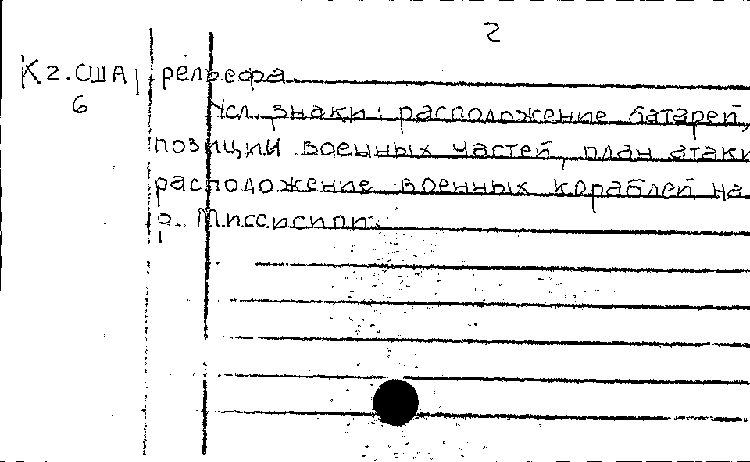 2
К 2. США рельефа
6
Усл. знаки: расположение батарей,
позиций военных частей, план атаки
расположение военных кораблей на
р. Миссисипи.